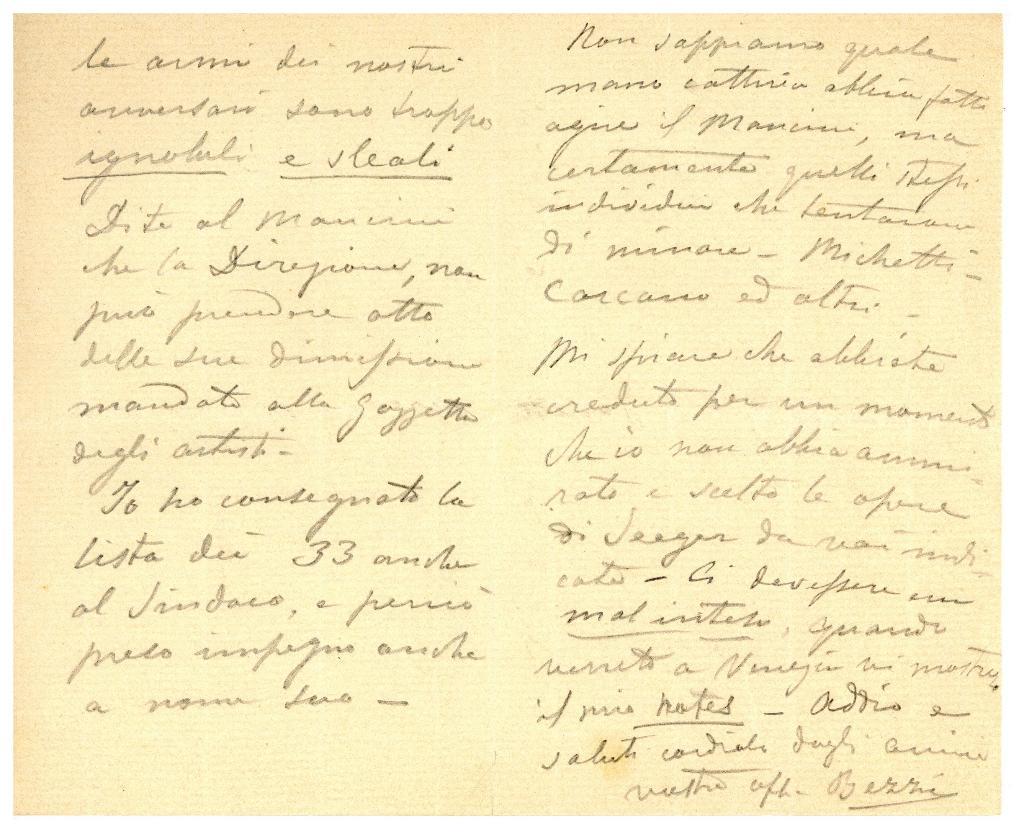 le armi dei nostri
avversari sono troppo
ignobili e sleali
Dite al Mancini
che la Direzione, non
può prendere atto
delle sue dimissioni
mandate alla Gazzetta
degli artisti -
Io ho consegnato la
lista dei 33 anche
al Sindaco, e perciò
preso impegno anche
a nome suo -
Non sappiamo quale
mano cattiva abbia fatto
agire il Mancini, ma
certamente quelli stessi
individui che tentarono
di minare - Michetti -
Carcano ed altri -
Mi spiace che abbiate
creduto per un momento
che io non abbia ammi
rato e scelto le opere
di Seeger da voi indi-
cate - Ci dev'essere un
mal inteso, quando
verrete a Venezia vi mostrerò
il mio notes - Addio e
saluti cordiali dagli amici
vostro aff. Bezzi